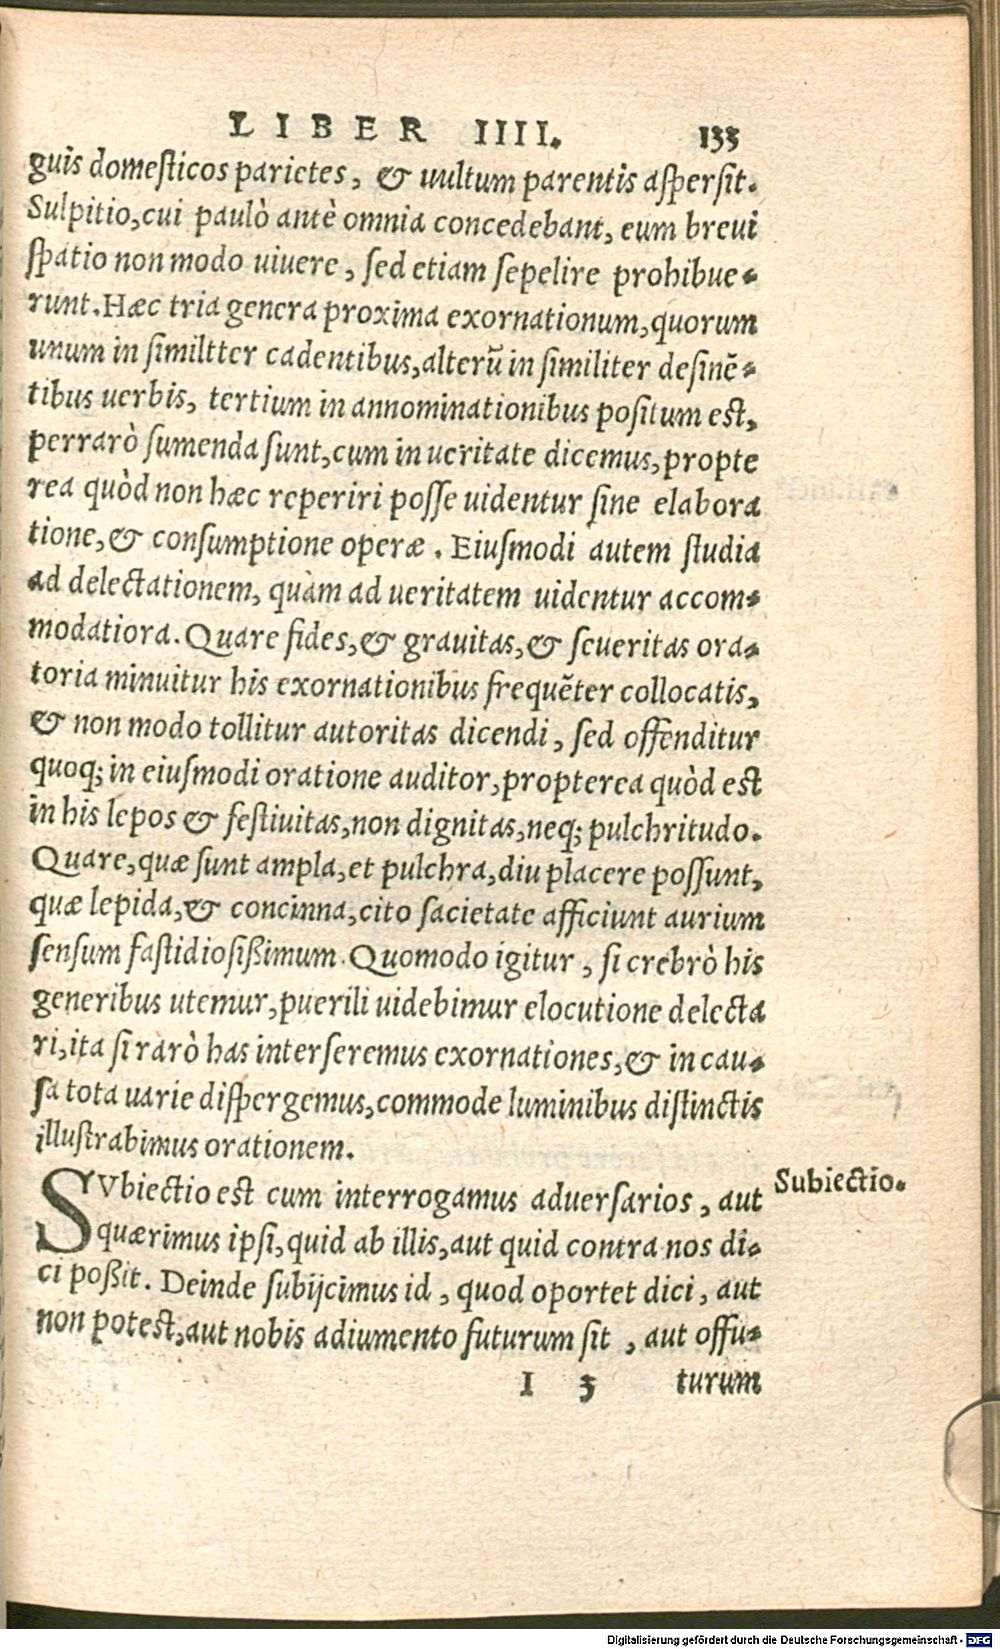 LIBER IIII. 133
guis domesticos parietes, & uultum parentis aspersit.
Sulpitio, cui paulò antè omnia concedebant, eum breui
spatio non modo uiuere, sed etiam sepelire prohibue-
runt. Hæc tria genera proxima exornationum, quorum
unum in similtter cadentibus, alterū in similiter desinē-
tibus uerbis, tertium in annominationibus positum est,
perrarò sumenda sunt, cum in ueritate dicemus, propte
rea quòd non hæc reperiri posse uidentur sine elabora
tione, & consumptione operæ. Eiusmodi autem studia
ad delectationem, quàm ad ueritatem uidentur accom-
modatiora. Quare fides, & grauitas, & seueritas ora-
toria minuitur his exornationibus frequēter collocatis,
& non modo tollitur autoritas dicendi, sed offenditur
quoq; in eiusmodi oratione auditor, propterea quòd est
in his lepos & festiuitas, non dignitas, neq; pulchritudo.
Quare, quæ sunt ampla, et pulchra, diu placere possunt,
quæ lepida, & concinna, cito sacietate afficiunt aurium
sensum fastidiosißimum. Quomodo igitur, si crebrò his
generibus utemur, puerili uidebimur elocutione delecta
ri, ita si rarò has interseremus exornationes, & in cau-
sa tota uarie dispergemus, commode luminibus distinctis
illustrabimus orationem.
SVbiectio est cum interrogamus aduersarios, aut
Subiectio.
quærimus ipsi, quid ab illis, aut quid contra nos di-
ci poßit. Deinde subijcimus id, quod oportet dici, aut
non potest, aut nobis adiumento futurum sit, aut offu-
I 3 turum
Digitalisierung gefördert durch die Deutsche Forschungsgemeinschaft - DFG